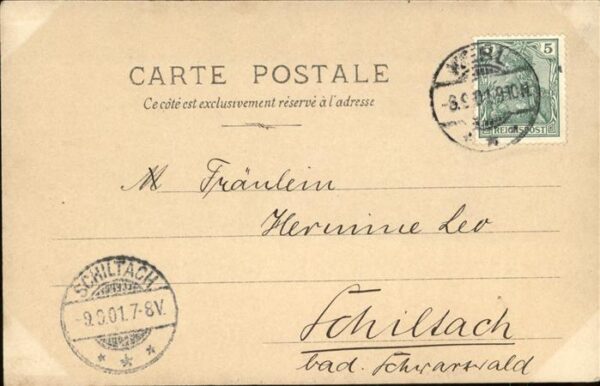 CARTE POSTALE
Ce côté est exclusivement réservé à l'adresse
KEHL
-8.9.01.9-10N.
5
REICHSPOST
M Fräulein
Hermine Leo
SCHILTACH
-9.9.01.7-8V.
Schiltach
bad. Schwarzwald